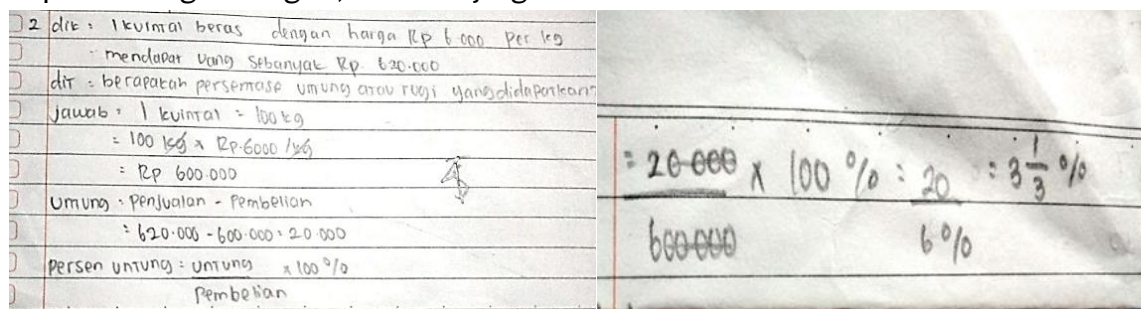 2 dik : 1 kuintal beras dengan harga Rp 6.000 Per kg
mendapat uang sebanyak Rp 620.000
dit : berapakah persentase untung atau rugi yang didapatkan?
jawab : 1 kuintal = 100 kg
= 100 kg x Rp.6000 /kg
= Rp 600.000
untung = Penjualan - Pembelian
= 620.000 - 600.000 = 20.000
Persen untung = untung x 100 %
Pembelian
= 20.000 x 100 % = 20 = 3 1/3 %
600.000 6 %